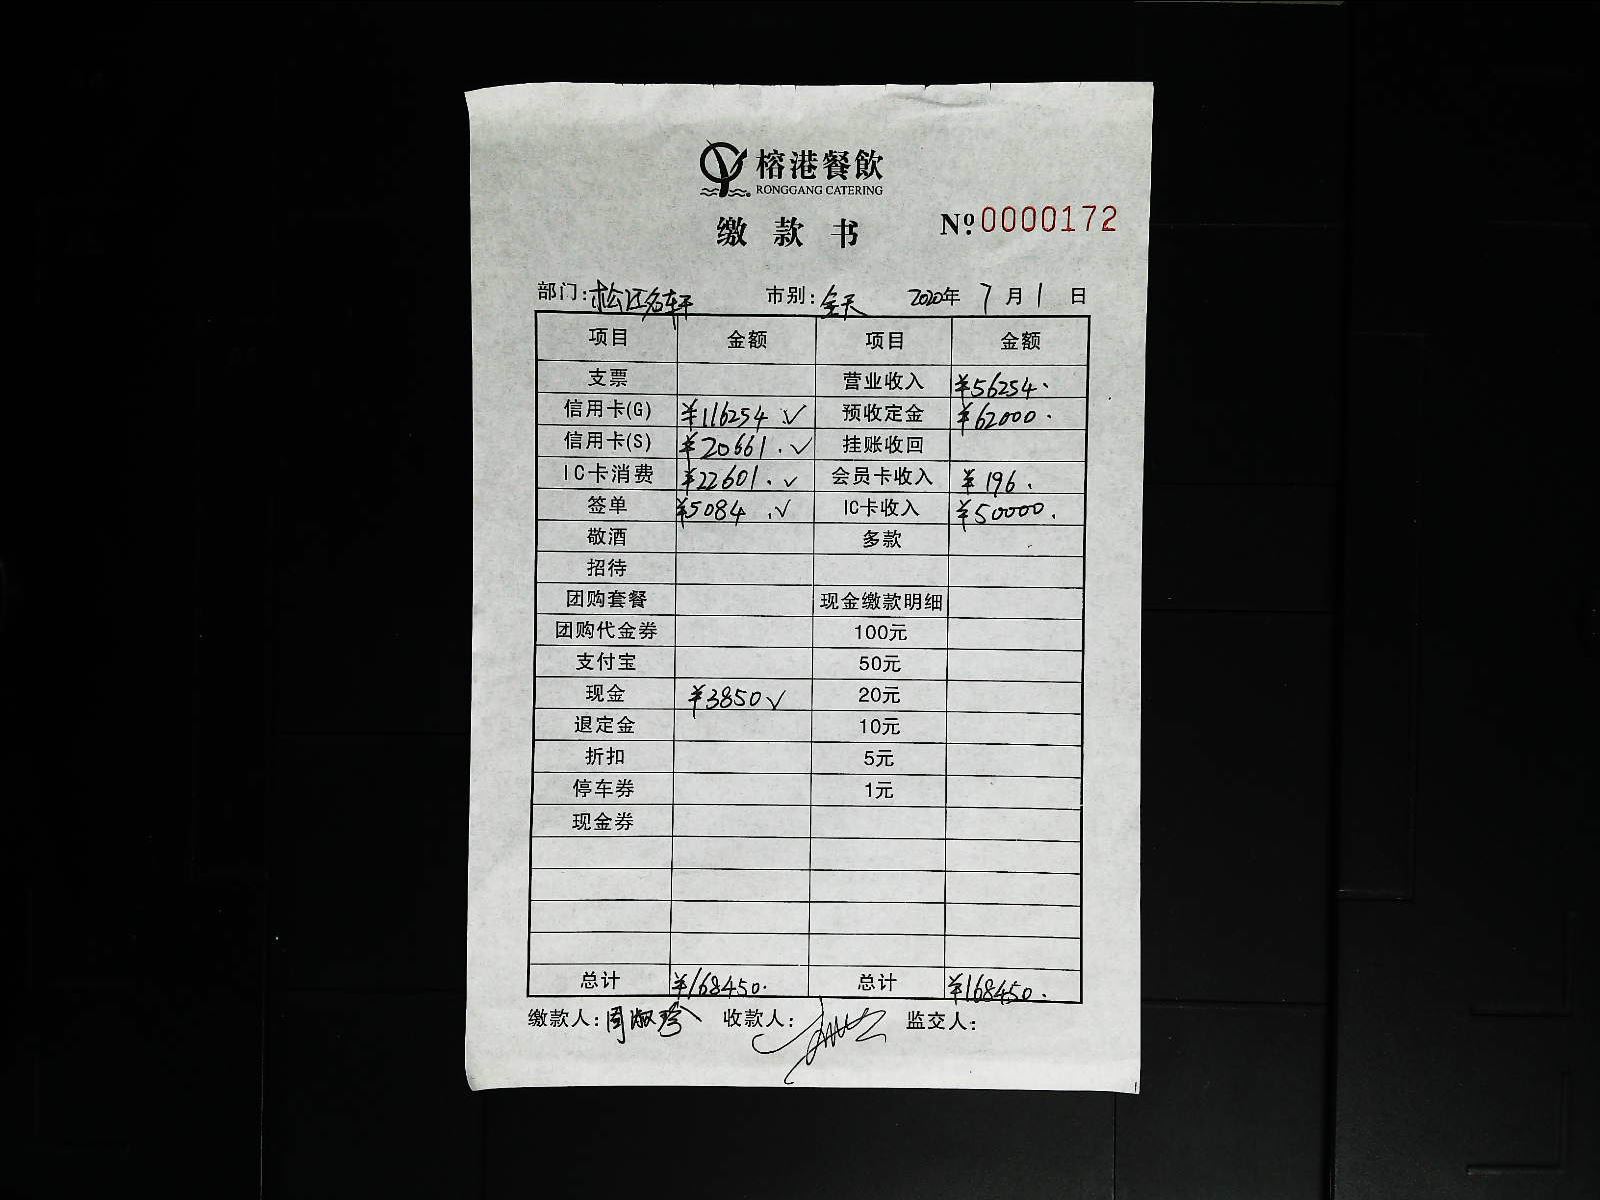 榕港餐飲
RONGGANG CATERING
缴款书
№ 0000172
部门:松江名轩 市别:全天 2020年7月1日
项目 金额 项目 金额
支票 营业收入 ¥56254.
信用卡(G) ¥116254 √ 预收定金 ¥62000.
信用卡(S) ¥20661. √ 挂账收回
IC卡消费 ¥22601. √ 会员卡收入 ¥196.
签单 ¥5084. √ IC卡收入 ¥50000.
敬酒 多款
招待
团购套餐 现金缴款明细
团购代金券 100元
支付宝 50元
现金 ¥3850 √ 20元
退定金 10元
折扣 5元
停车券 1元
现金券
总计 ¥168450. 总计 ¥168450.
缴款人:周淑珍 收款人: 监交人: